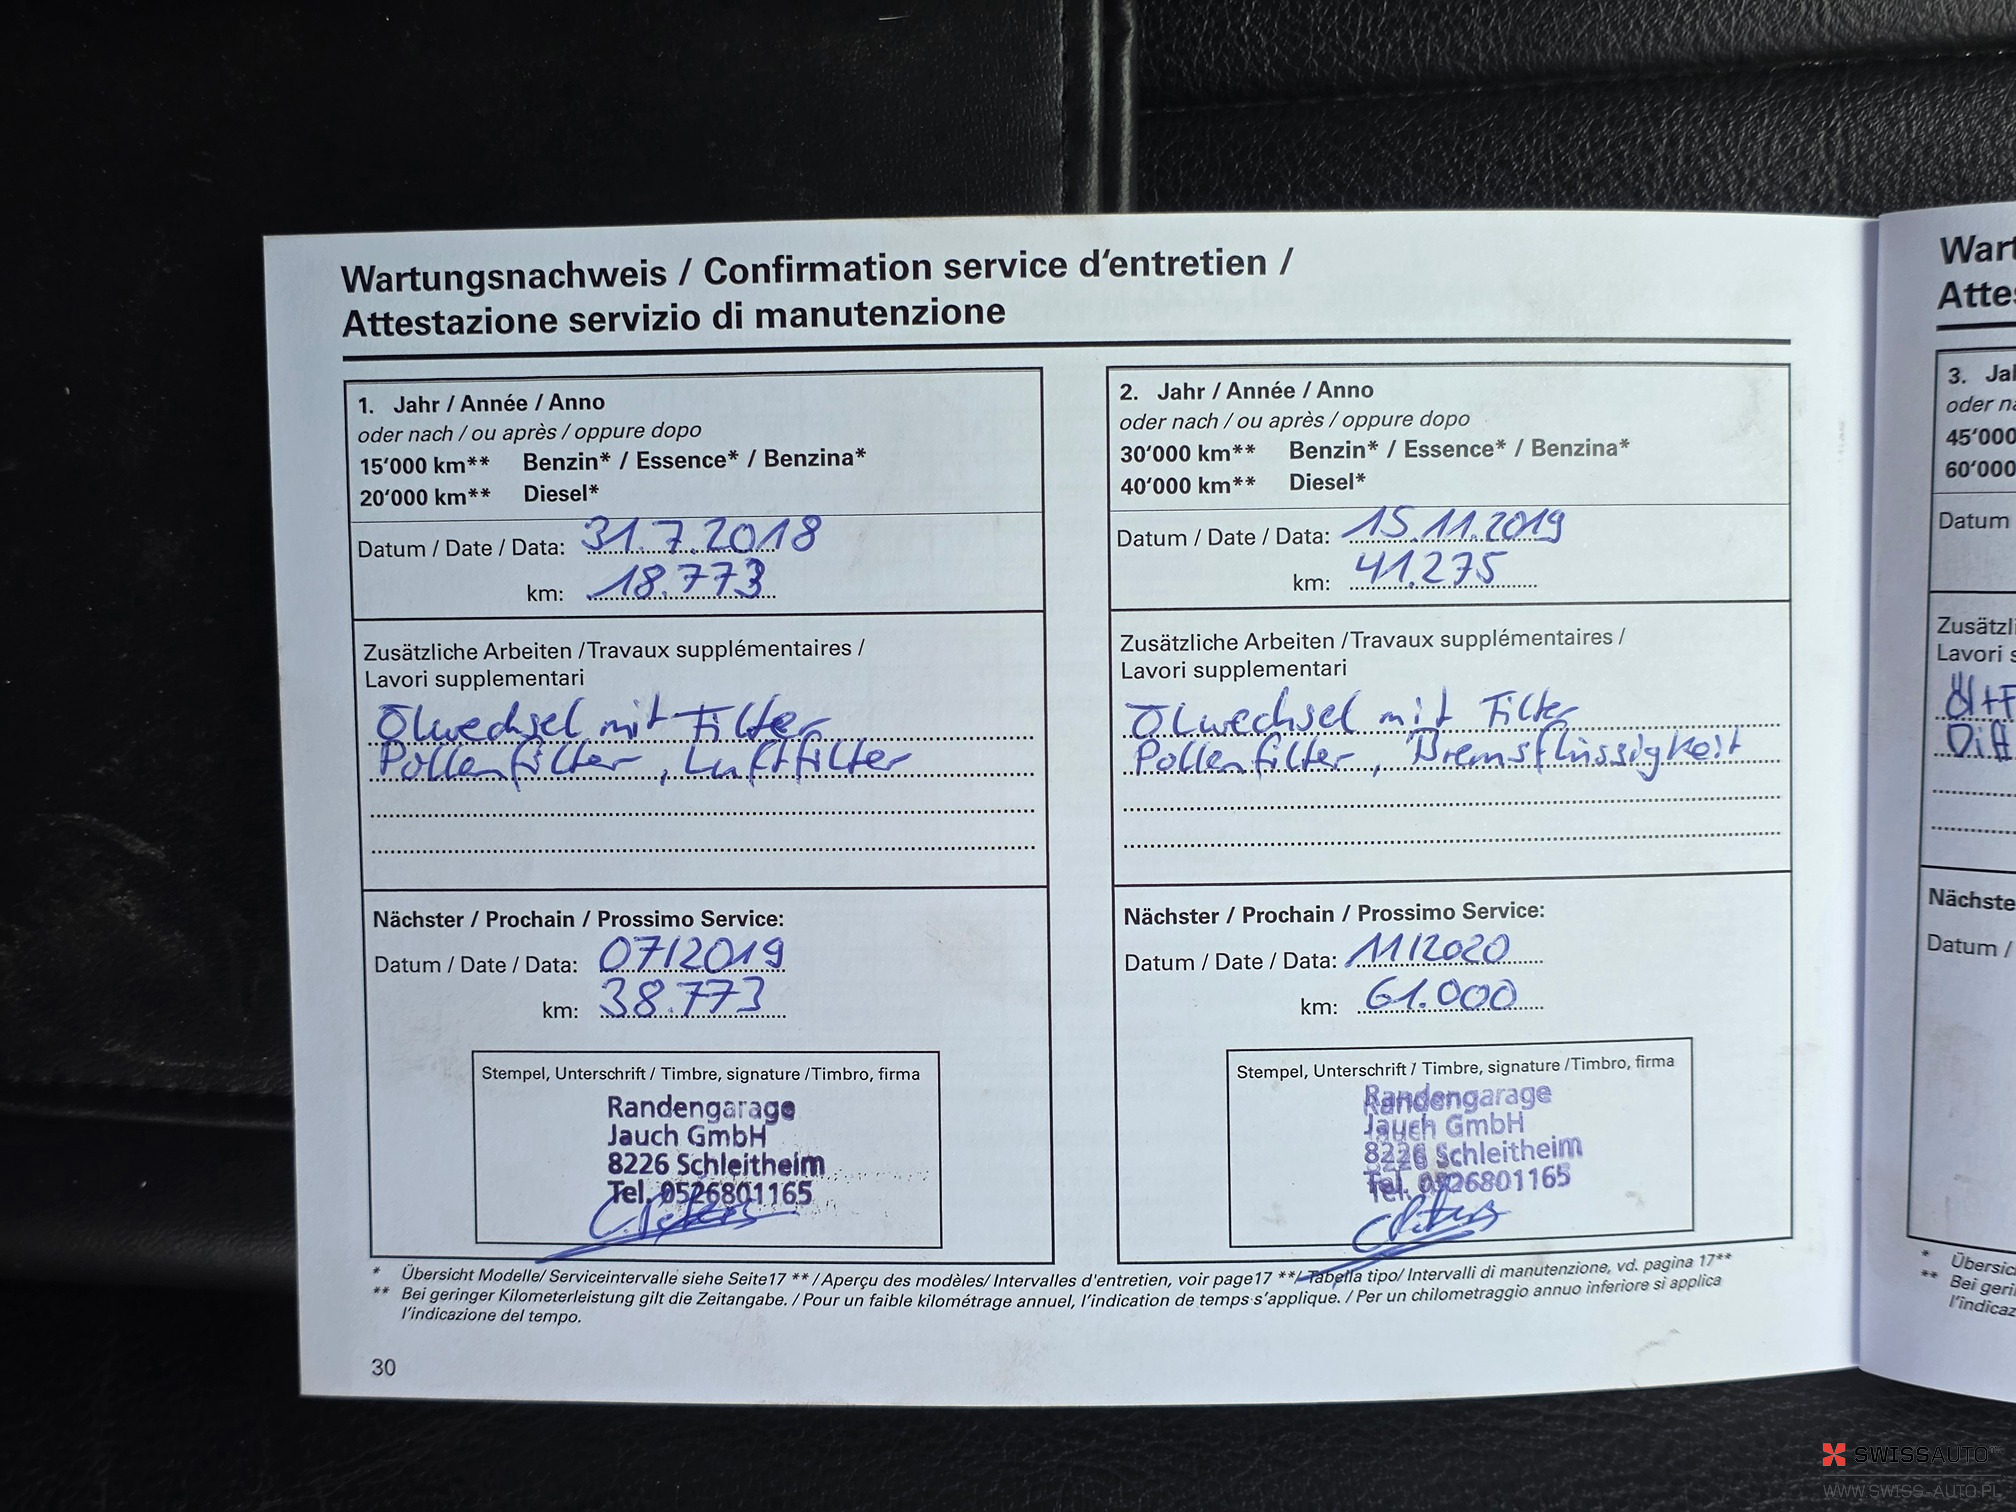 Wartungsnachweis / Confirmation service d'entretien /
Attestazione servizio di manutenzione
1. Jahr / Année / Anno
oder nach / ou après / oppure dopo
15'000 km** Benzin* / Essence* / Benzina*
20'000 km** Diesel*
Datum / Date / Data: 31.7.2018
km: 18.773
Zusätzliche Arbeiten / Travaux supplémentaires /
Lavori supplementari
Ölwechsel mit Filter
Pollenfilter, Luftfilter
Nächster / Prochain / Prossimo Service:
Datum / Date / Data: 07/2019
km: 38.773
Stempel, Unterschrift / Timbre, signature / Timbro, firma
Randengarage
Jauch GmbH
8226 Schleitheim
Tel. 0526801165
2. Jahr / Année / Anno
oder nach / ou après / oppure dopo
30'000 km** Benzin* / Essence* / Benzina*
40'000 km** Diesel*
Datum / Date / Data: 15.11.2019
km: 41.275
Zusätzliche Arbeiten / Travaux supplémentaires /
Lavori supplementari
Ölwechsel mit Filter
Pollenfilter, Bremsflüssigkeit
Nächster / Prochain / Prossimo Service:
Datum / Date / Data: 11/2020
km: 61.000
Stempel, Unterschrift / Timbre, signature / Timbro, firma
Randengarage
Jauch GmbH
8226 Schleitheim
Tel. 0526801165
* Übersicht Modelle/ Serviceintervalle siehe Seite17 ** / Aperçu des modèles/ Intervalles d'entretien, voir page17 **/ Tabella tipo/ Intervalli di manutenzione, vd. pagina 17**
** Bei geringer Kilometerleistung gilt die Zeitangabe. / Pour un faible kilométrage annuel, l'indication de temps s'applique. / Per un chilometraggio annuo inferiore si applica
l'indicazione del tempo.
30
3.
oder
45'000
60'000
Datum
Lavori
Datum /
*
** Bei
SWISSAUTO
WWW.SWISS-AUTO.PL